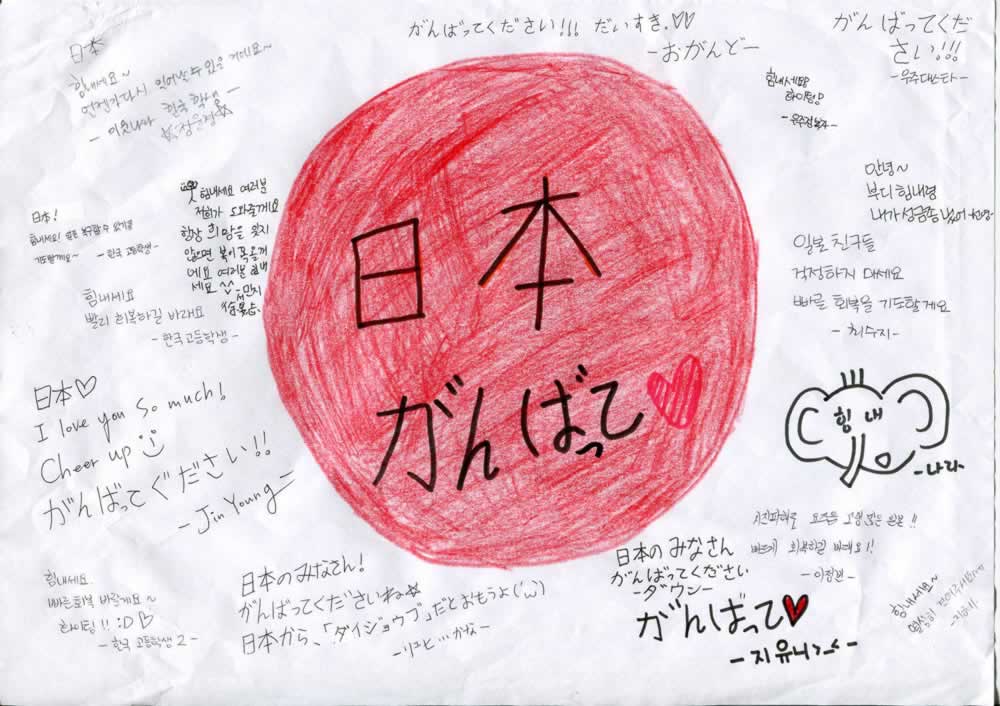 日本
힘내세요~
언젠가 다시 일어날 수 있을 거에요~
- 이웃나라 한국 학생 -
がんばってください!!! だいすき.♡♡
-おがんど-
がんばってくだ
さい!!!
-우주대스타-
힘내세요
하이팅!
안녕~
부디 힘내령
내가 성금좀 냈어
일본 친구들
걱정하지 마세요
빠를 회복을 기도할게요
- 최수지 -
힘내세요 여러분
저희가 도와줄게요
항상 희망을 잊지
않으면 복이 꼭올꺼
에요 여러분 힘내
세요 ^^
日本!
- 한국 고등학생 -
힘내세요
빨리 회복하길 바래요
- 한국고등학생 -
日本
がんばって♡
日本♡
I love you so much!
Cheer up
がんばってぐださい!!
- Jin Young -
힘내
-나라-
빠르게 회복하길 바래요!!
힘내세요.
빠른회복 바랄게요~
화이팅!! :D ♡
- 한국 고등학생 2 -
日本のみなさん!
がんばってくださいね☆
日本から、「ダイジョウブ」だとおもうよ('ω')
日本の みなさん
がんばってください
-ダウン-
がんばって♥
- 지유니>_< -
힘내세요~